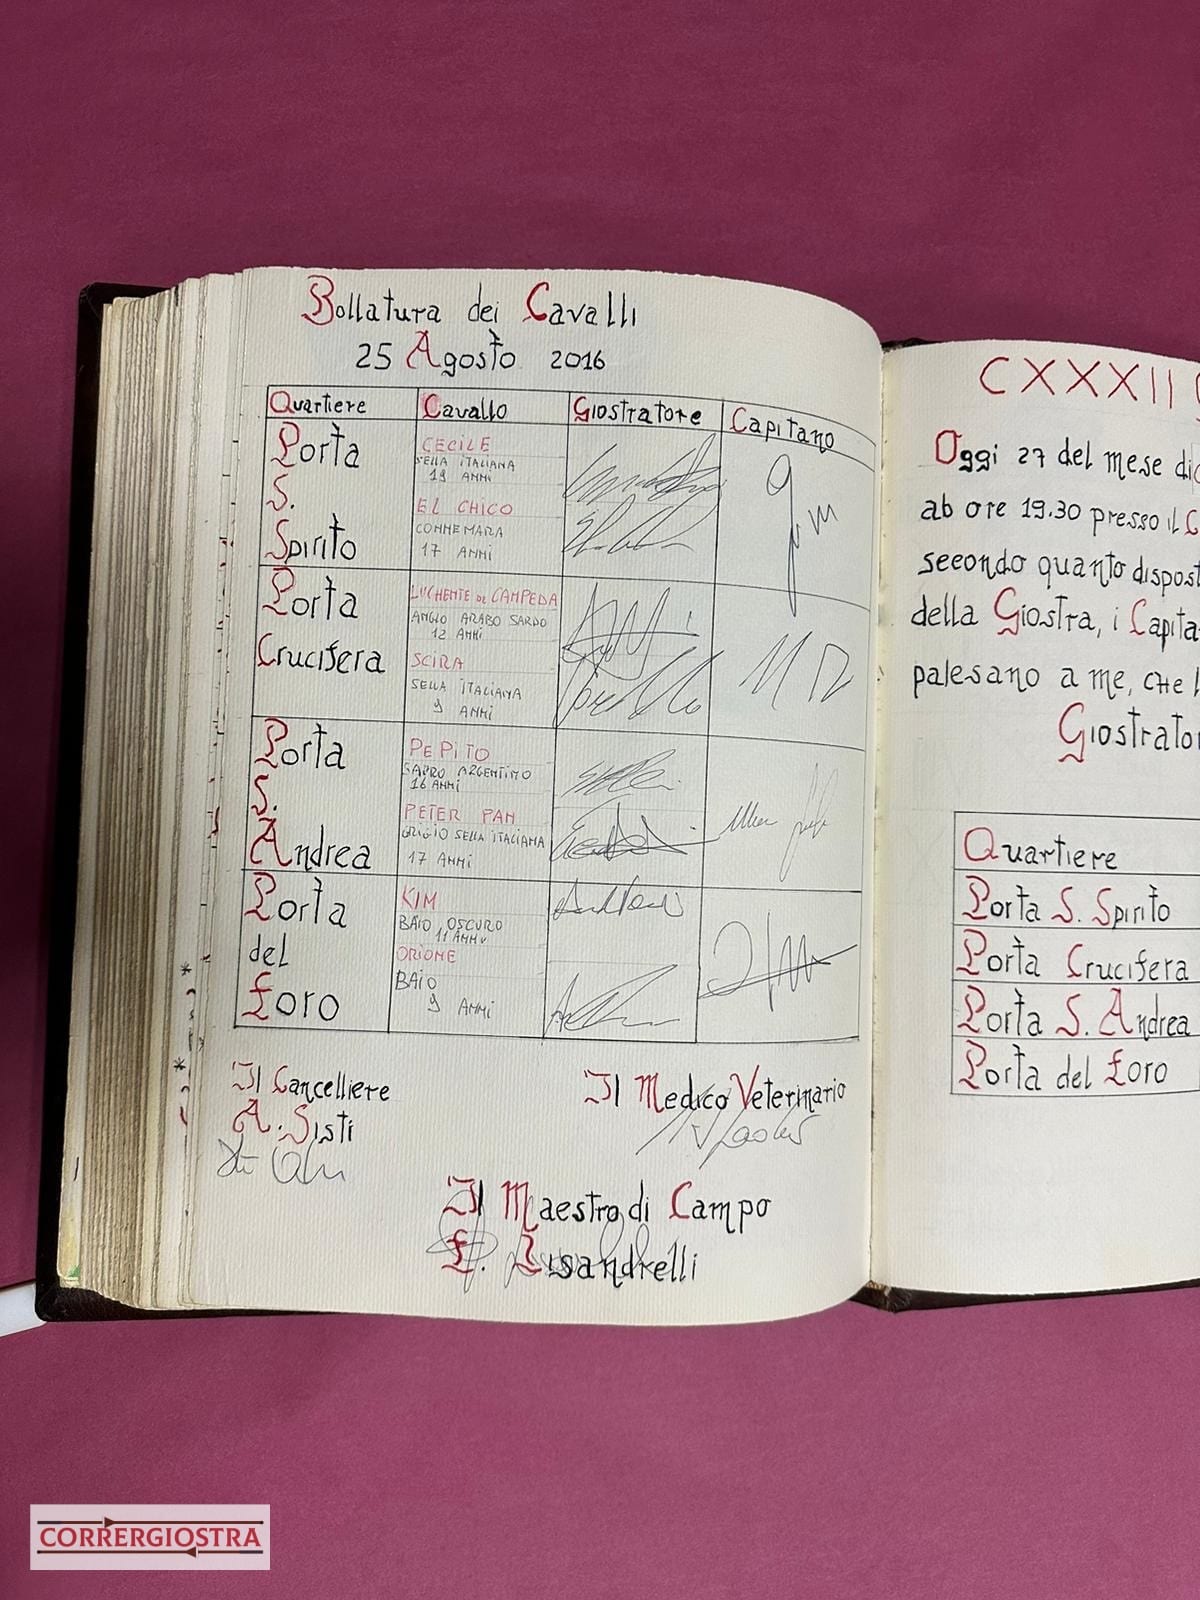 Bollatura dei Cavalli
25 Agosto 2016
Quartiere Cavallo Giostratore Capitano
Porta S. Spirito
CECILE
SELLA ITALIANA
19 ANNI
EL CHICO
CONNEMARA
17 ANNI
Porta Crucifera
LUCHENTE DE CAMPEDA
ANGLO ARABO SARDO
12 ANNI
SCIRA
SELLA ITALIANA
9 ANNI
Porta S. Andrea
PEPITO
SAURO ARGENTINO
16 ANNI
PETER PAN
GRIGIO SELLA ITALIANA
17 ANNI
Porta del Foro
KIM
BAIO OSCURO
11 ANNI
ORIONE
BAIO
9 ANNI
Il Cancelliere
A. Sisti
Il Medico Veterinario
Il Maestro di Campo
F. Lisandrelli
CXXXII
Oggi 27 del mese di
ab ore 19.30 presso il
secondo quanto dispost
della Giostra, i Capita
palesano a me, che l
Giostrator
Quartiere
Porta S. Spirito
Porta Crucifera
Porta S. Andrea
Porta del Foro
CORRERGIOSTRA